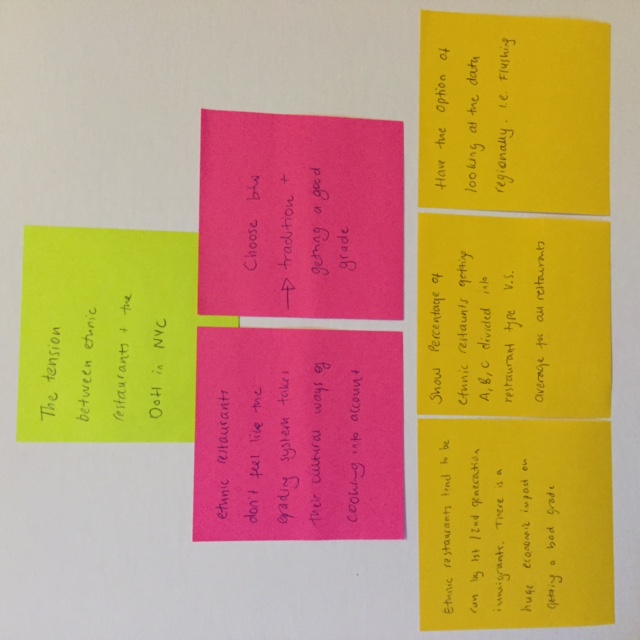 The tension
between ethnic
restaurants + the
OoH in NYC
ethnic restaurants
don't feel like the
grading system takes
their cultural ways of
cooking into account
Choose btw
→ tradition +
getting a good
grade
Ethnic restaurants tend to be
run by 1st/2nd generation
immigrants. There is a
huge economic impact on
getting a bad grade
Show Percentage of
ethnic restaunts getting
A, B, C divided into
restaurant type V.S.
average for all restaurants
Have the option of
looking at the data
regionally. i.e. Flushing